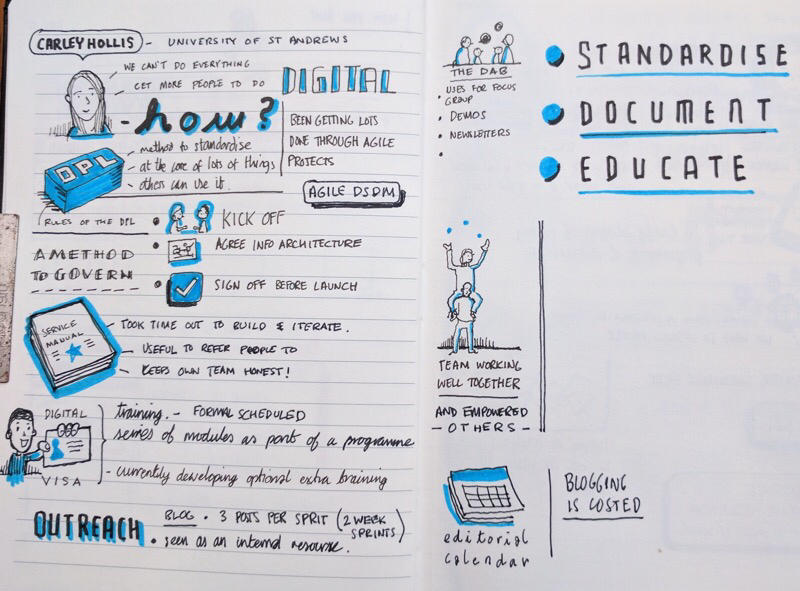 CARLEY HOLLIS - UNIVERSITY OF ST ANDREWS
WE CAN'T DO EVERYTHING
GET MORE PEOPLE TO DO DIGITAL
- how?
BEEN GETTING LOTS
DONE THROUGH AGILE
PROTECTS
DPL
method to standardise
at the core of lots of things
others can use it.
AGILE DSDM
RULES OF THE DPL
A METHOD
TO GOVERN
KICK OFF
AGREE INFO ARCHITECTURE
SIGN OFF BEFORE LAUNCH
SERVICE
MANUAL
TOOK TIME OUT TO BUILD & ITERATE.
USEFUL TO REFER PEOPLE TO
KEEPS OWN TEAM HONEST!
DIGITAL
VISA
training. - FORMAL SCHEDULED
series of modules as part of a programme
- currently developing optional extra training
OUTREACH
BLOG • 3 POSTS PER SPRIT (2 WEEK
SPRINTS)
• seen as an internal resourse.
THE DAB
• USES FOR FOCUS
GROUP
• DEMOS
• NEWSLETTERS
•
• STANDARDISE
• DOCUMENT
• EDUCATE
TEAM WORKING
WELL TOGETHER
AND EMPOWERED
- OTHERS -
editorial
calendar
BLOGGING
IS COSTED